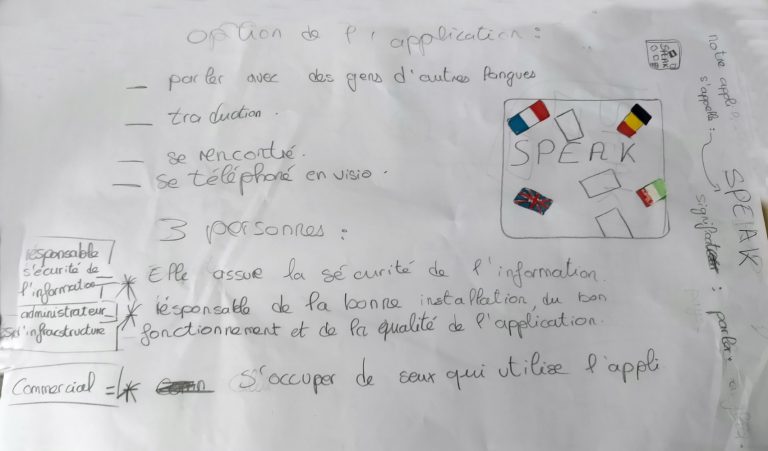 option de l'application :
— parler avec des gens d'autres langues
— traduction.
— se rencontré.
— se téléphoné en visio.
SPEAK
3 personnes :
résponsable
sécurité de
l'information
* Elle assure la sécurité de l'information.
administrateur
infrastructure
* résponsable de la bonne installation, du bon
fonctionnement et de la qualité de l'application.
Commercial =
* S'occuper de ceux qui utilise l'appli
SPEAK
notre appli
s'appelle :
SPEAK
: parler